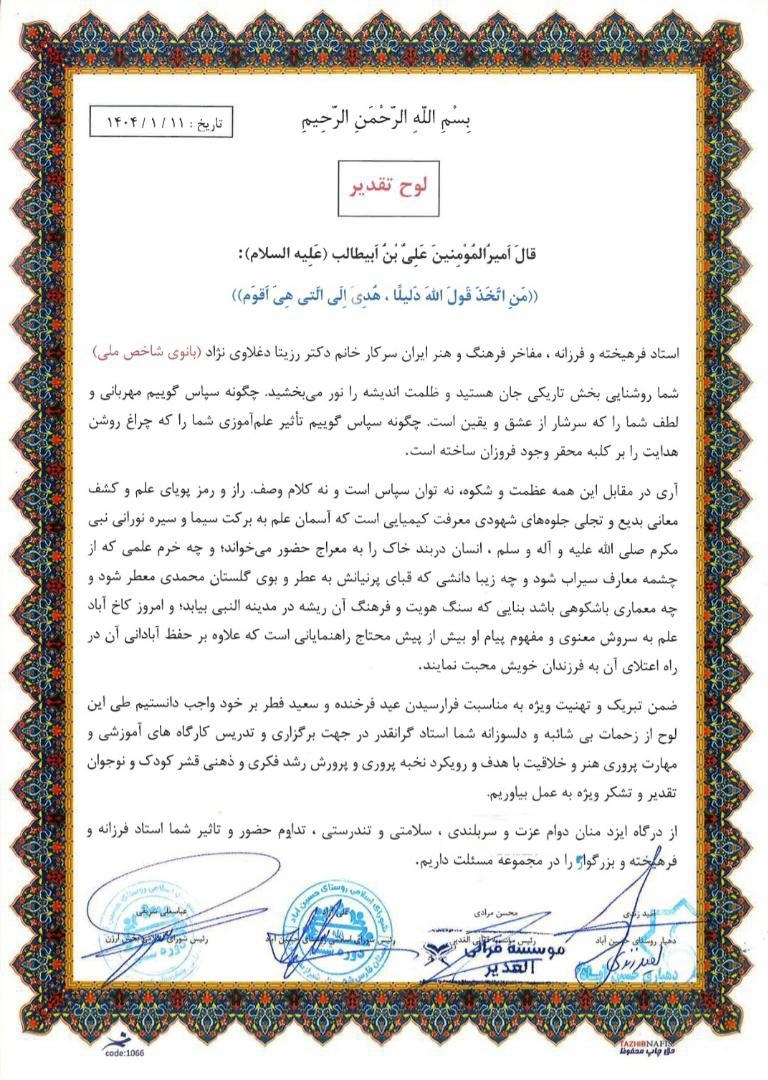 بِسْمِ اللَّهِ الرَّحْمَنِ الرَّحِيمِ
تاریخ : ۱۴۰۴ / ۱ / ۱۱
لوح تقدیر
قالَ اَمیرُالمُؤمِنینَ عَلِیِّ بْنِ اَبیطالب (عَلِیه السلام):
((مَنِ اتَّخَذَ قَولَ اللهَ دَلیلًا ، هُدِیَ اِلَی الَّتی هِیَ اَقوَم))
استاد فرهیخته و فرزانه ، مفاخر فرهنگ و هنر ایران سرکار خانم دکتر رزیتا دغلاوی نژاد (بانوی شاخص ملی)
شما روشنایی بخش تاریکی جان هستید و ظلمت اندیشه را نور می‌بخشید. چگونه سپاس گوییم مهربانی و
لطف شما را که سرشار از عشق و یقین است. چگونه سپاس گوییم تأثیر علم‌آموزی شما را که چراغ روشن
هدایت را بر کلبه محقر وجود فروزان ساخته است.
آری در مقابل این همه عظمت و شکوه، نه توان سپاس است و نه کلام وصف. راز و رمز پویای علم و کشف
معانی بدیع و تجلی جلوه‌های شهودی معرفت کیمیایی است که آسمان علم به برکت سیما و سیره نورانی نبی
مکرم صلی الله علیه و آله و سلم ، انسان دربند خاک را به معراج حضور می‌خواند؛ و چه خرم علمی که از
چشمه معارف سیراب شود و چه زیبا دانشی که قبای پرنیانش به عطر و بوی گلستان محمدی معطر شود و
چه معماری باشکوهی باشد بنایی که سنگ هویت و فرهنگ آن ریشه در مدینه النبی بیابد؛ و امروز کاخ آباد
علم به سروش معنوی و مفهوم پیام او بیش از پیش محتاج راهنمایانی است که علاوه بر حفظ آبادانی آن در
راه اعتلای آن به فرزندان خویش محبت نمایند.
ضمن تبریک و تهنیت ویژه به مناسبت فرارسیدن عید فرخنده و سعید فطر بر خود واجب دانستیم طی این
لوح از زحمات بی شائبه و دلسوزانه شما استاد گرانقدر در جهت برگزاری و تدریس کارگاه های آموزشی و
مهارت پروری هنر و خلاقیت با هدف و رویکرد نخبه پروری و پرورش رشد فکری و ذهنی قشر کودک و نوجوان
تقدیر و تشکر ویژه به عمل بیاوریم.
از درگاه ایزد منان دوام عزت و سربلندی ، سلامتی و تندرستی ، تداوم حضور و تاثیر شما استاد فرزانه و
فرهیخته و بزرگوار را در مجموعه مسئلت داریم.
امید زندی
دهیار روستای حسین آباد
دهیاری حسین آباد
محسن مرادی
رئیس موسسه قرآنی الغدیر
موسسه قرآنی
الغدیر
رئیس شورای اسلامی روستای حسین آباد
شورای اسلامی روستای حسین آباد
عباسعلی شریفی
رئیس شورای بخش ارژن
code:1066
TAZHIBNAFIS
حق چاپ محفوظ